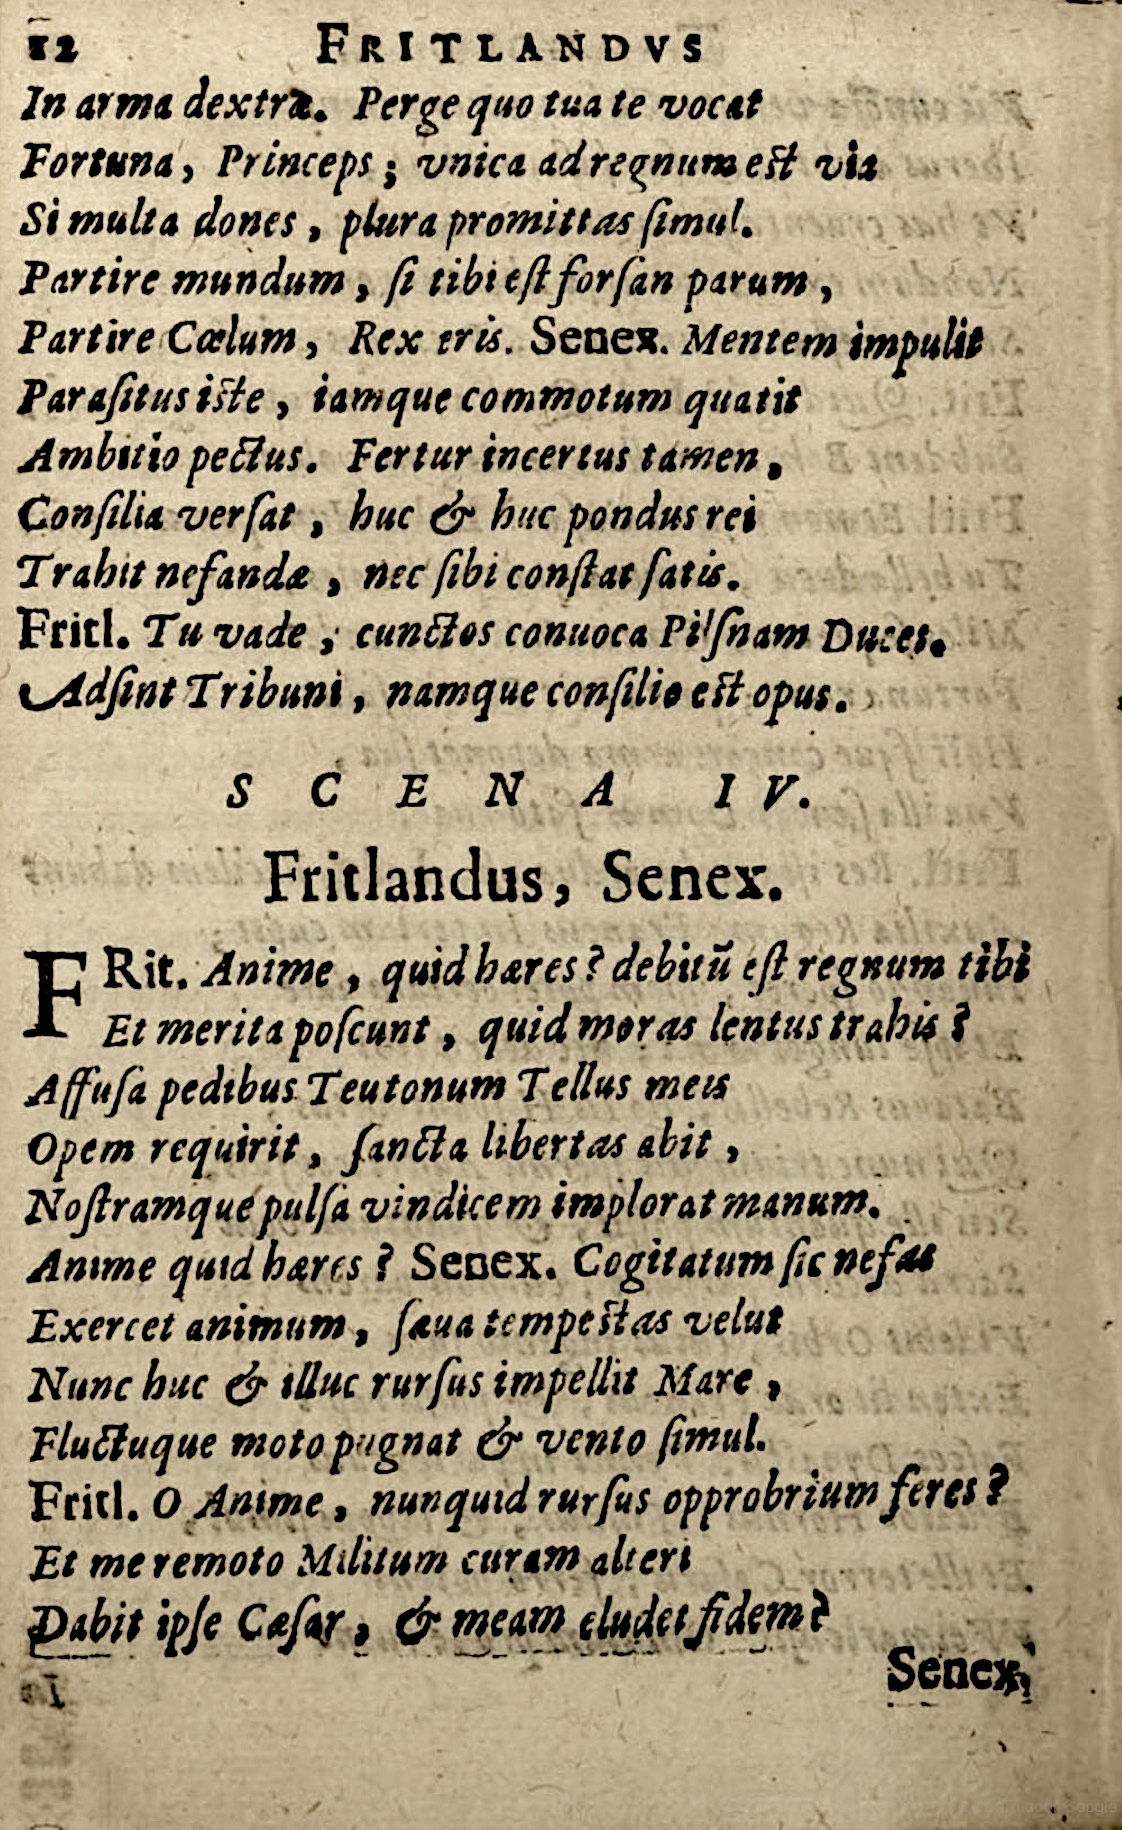 12 FRITLANDVS
In arma dextræ. Perge quo tua te vocat
Fortuna, Princeps; vnica ad regnum est via
Si multa dones, plura promittas ſimul.
Partire mundum, ſi tibi eſt forſan parum,
Partire Cœlum, Rex eris. Senex. Mentem impulit
Paraſitus iste, iamque commotum quatit
Ambitio pectus. Fertur incertus tamen,
Conſilia verſat, huc & huc pondus rei
Trahit nefandæ, nec ſibi conſtat ſatis.
Fritl. Tu vade, cunctos conuoca Pilſnam Duces.
Adſint Tribuni, namque conſilio est opus.
SCENA IV.
Fritlandus, Senex.
FRit. Anime, quid hæres? debitũ eſt regnum tibi
Et merita poſcunt, quid moras lentus trahis?
Affuſa pedibus Teutonum Tellus meis
Opem requirit, ſancta libertas abit,
Noſtramque pulſa vindicem implorat manum.
Anime quid hæres? Senex. Cogitatum ſic nefas
Exercet animum, ſæua tempestas velut
Nunc huc & illuc rurſus impellit Mare,
Fluctuque moto pugnat & vento ſimul.
Fritl. O Anime, nunquid rurſus opprobrium feres?
Et me remoto Militum curam alteri
Dabit ipſe Cæſar, & meam eludet fidem?
Senex,